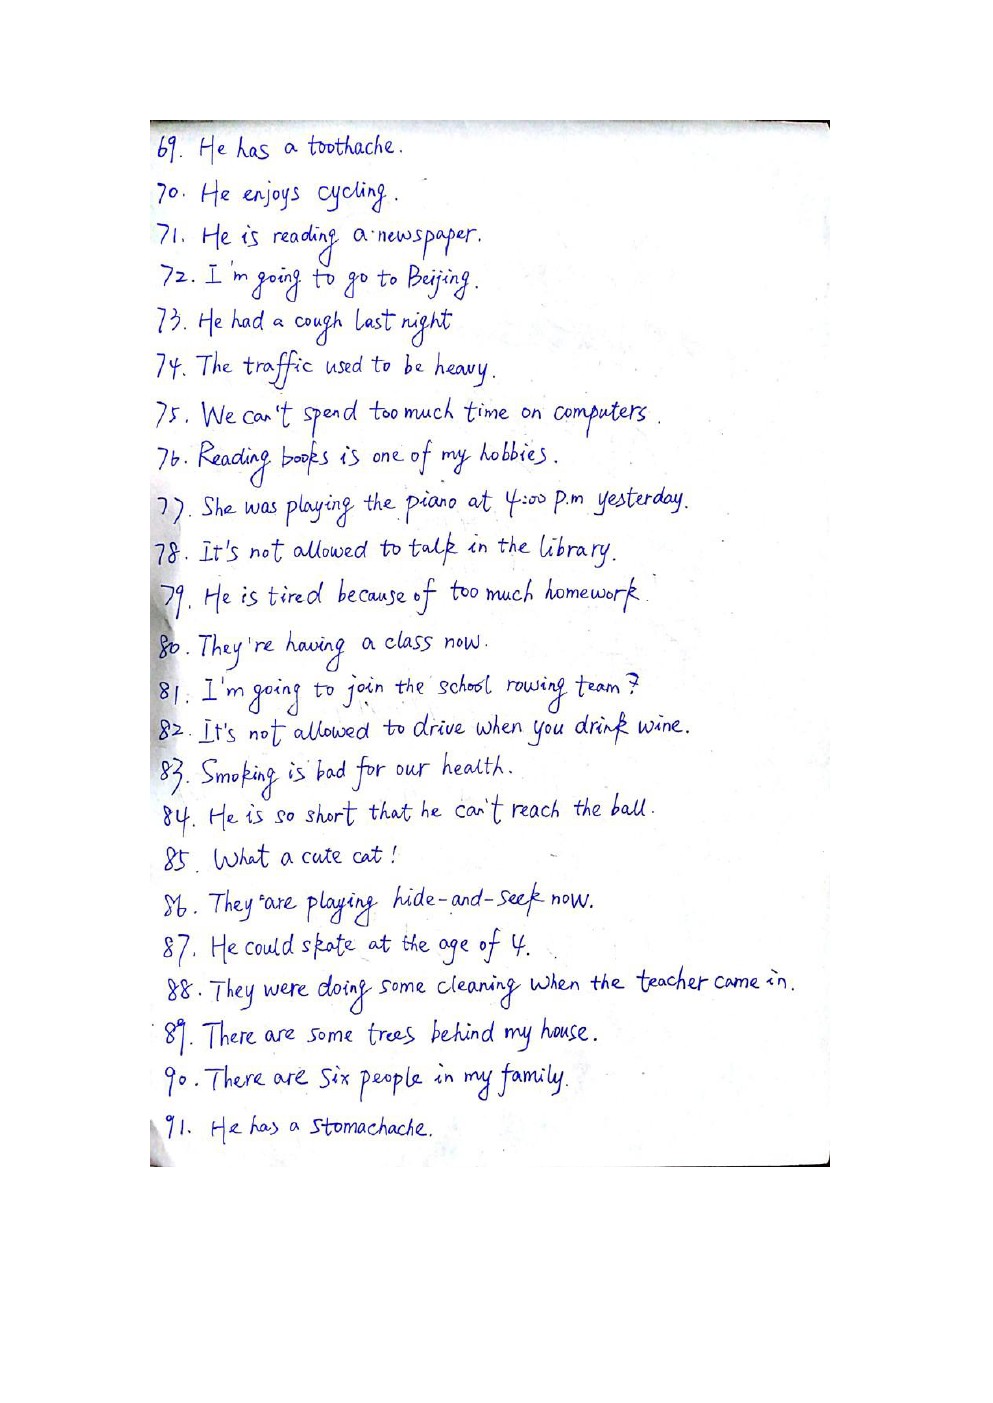 69. He has a toothache.
70. He enjoys cycling.
71. He is reading a newspaper.
72. I'm going to go to Beijing.
73. He had a cough last night
74. The traffic used to be heavy.
75. We can't spend too much time on computers.
76. Reading books is one of my hobbies.
77. She was playing the piano at 4:00 p.m yesterday.
78. It's not allowed to talk in the library.
79. He is tired because of too much homework.
80. They're having a class now.
81. I'm going to join the school rowing team?
82. It's not allowed to drive when you drink wine.
83. Smoking is bad for our health.
84. He is so short that he can't reach the ball.
85. What a cute cat!
86. They are playing hide-and-seek now.
87. He could skate at the age of 4.
88. They were doing some cleaning when the teacher came in.
89. There are some trees behind my house.
90. There are six people in my family.
91. He has a stomachache.